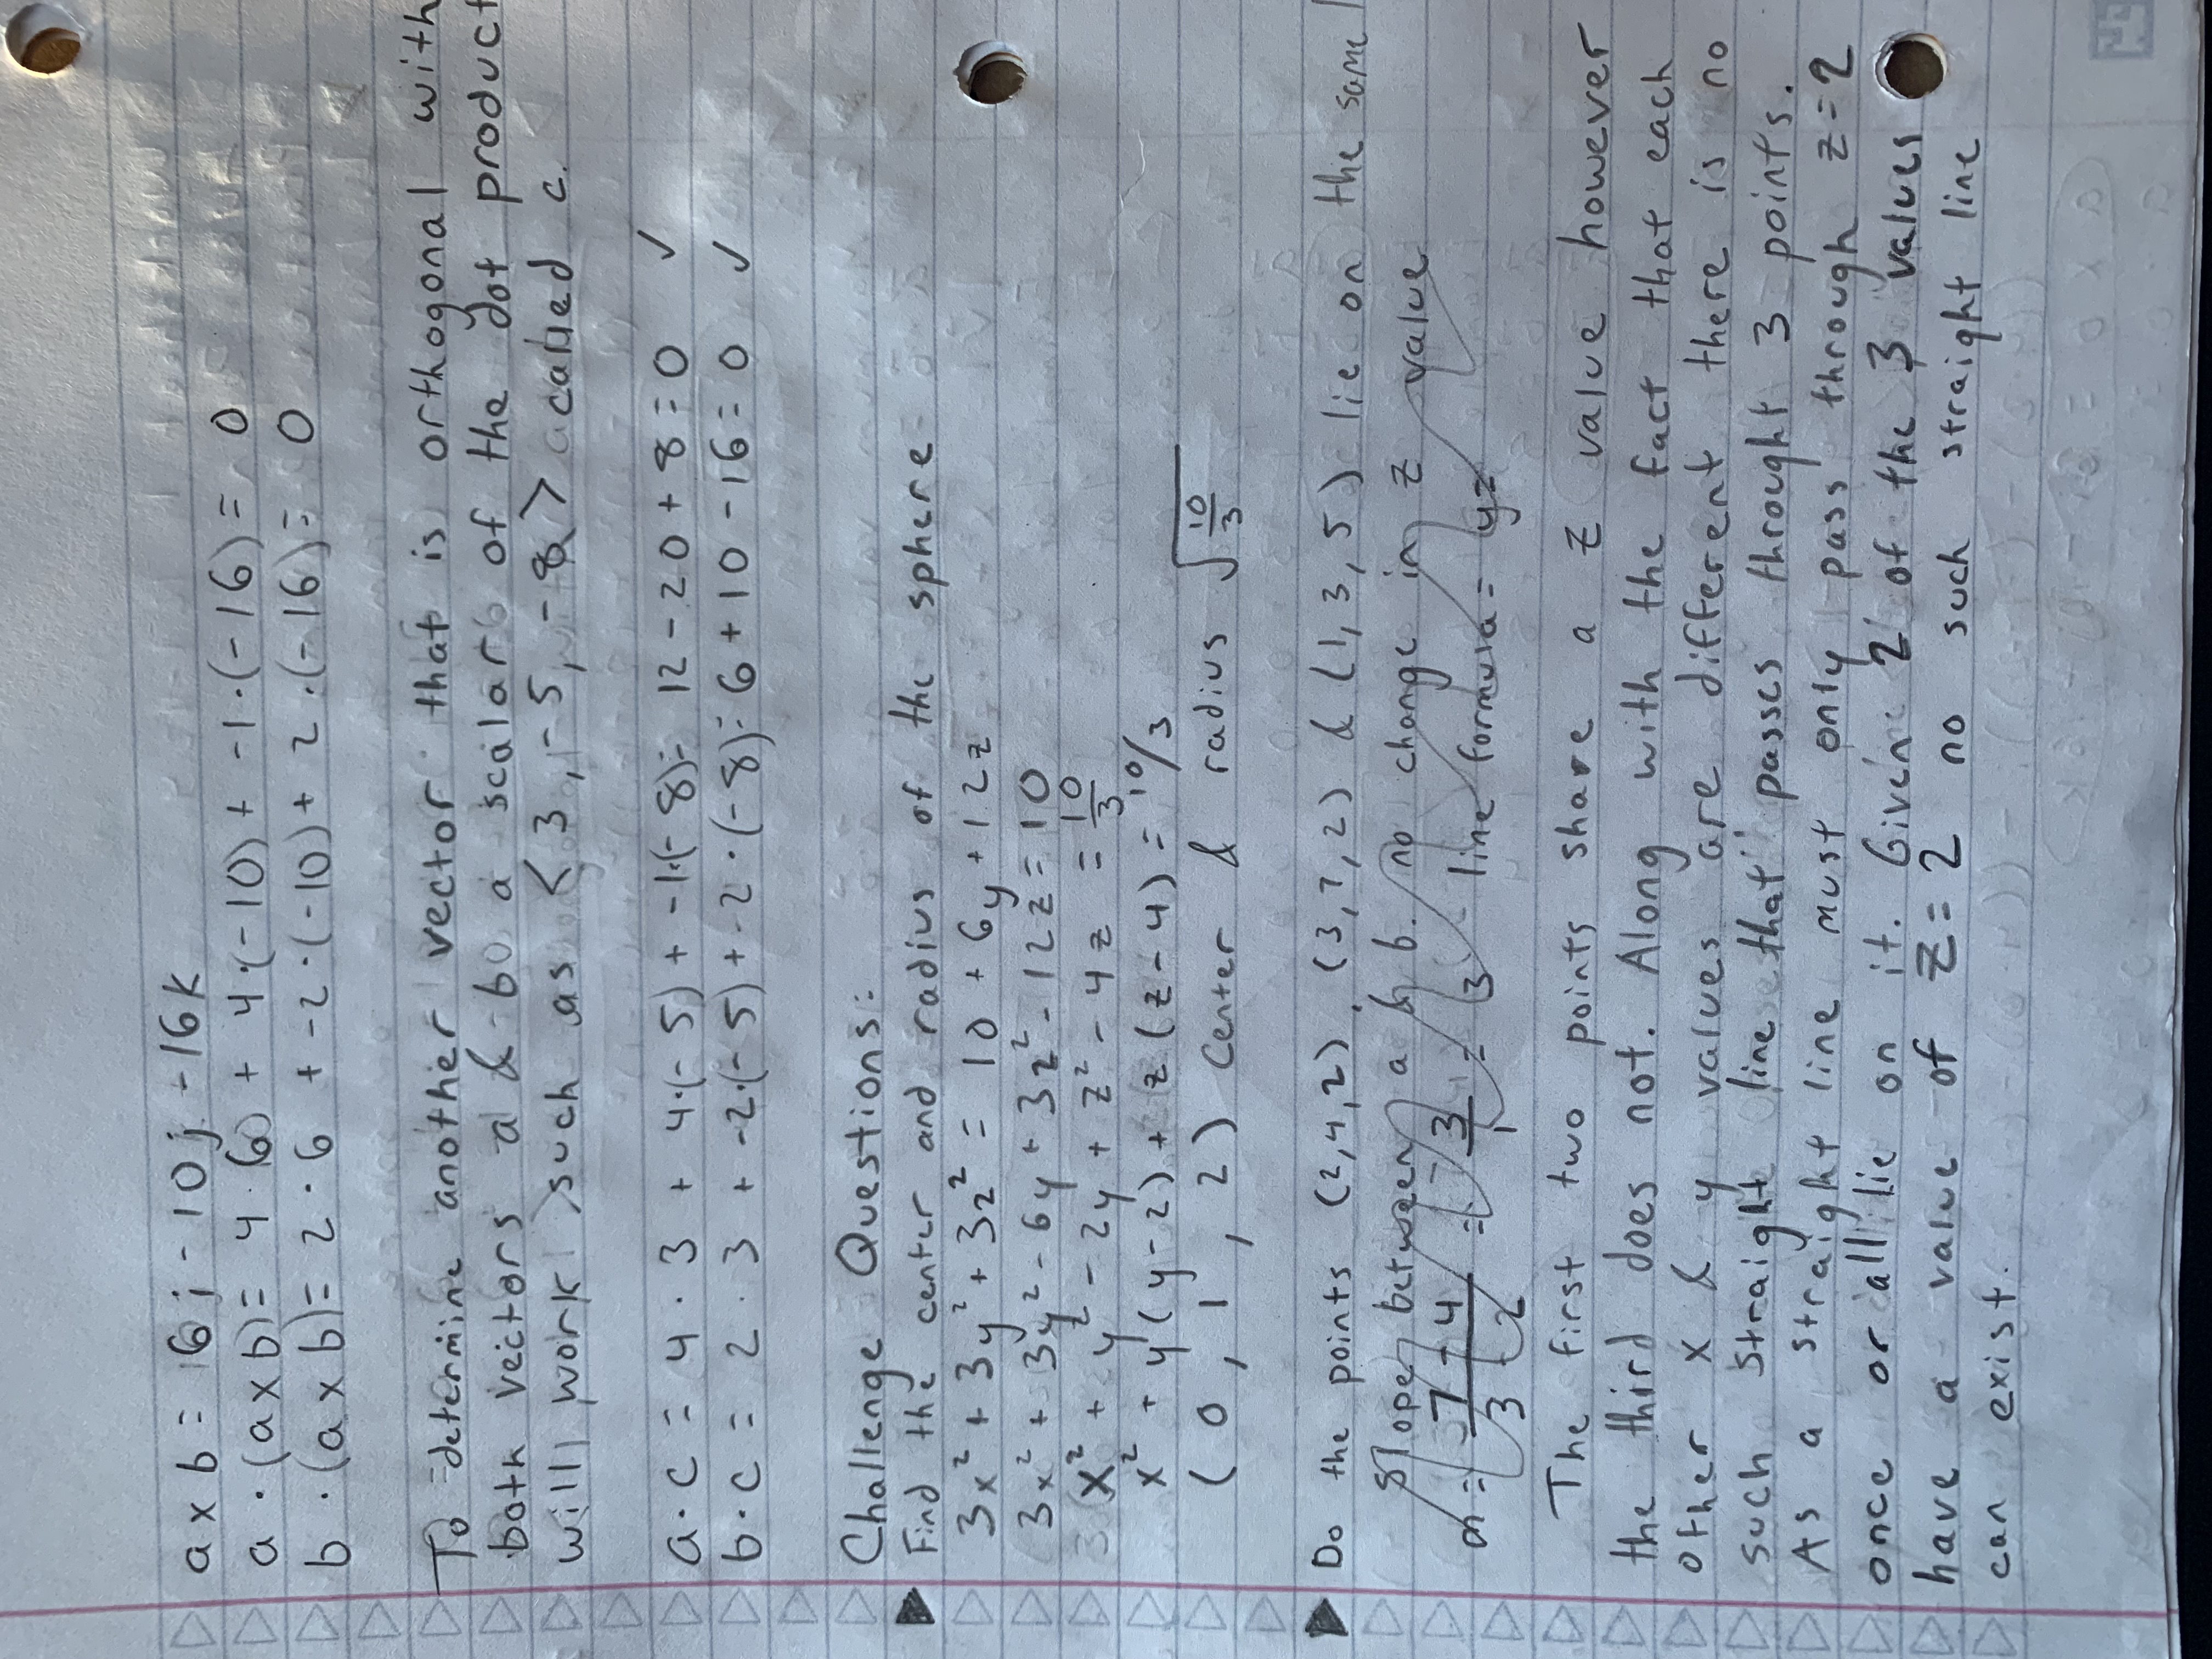 a x b = 6i - 10j - 16k
a · (a x b) = 4 · 6 + 4·(-10) + -1·(-16) = 0
b · (a x b) = 2 · 6 + -2·(-10) + 2·(-16) = 0
To determine another vector that is orthogonal with
both vectors a & b a scalar of the dot product
will work such as <3, -5, -8> called c.
a · c = 4 · 3 + 4·(-5) + -1·(-8) = 12 - 20 + 8 = 0 ✓
b · c = 2 · 3 + -2·(-5) + 2·(-8) = 6 + 10 - 16 = 0 ✓
Challenge Questions:
Find the center and radius of the sphere
3x² + 3y² + 3z² = 10 + 6y + 12z
3x² + 3y² - 6y + 3z² - 12z = 10
x² + y² - 2y + z² - 4z = 10/3
x² + y(y-2) + z(z-4) = 10/3
(0, 1, 2) center & radius √10/3
Do the points (2,4,2), (3,7,2) & (1,3,5) lie on the same
Slope between a & b. no change in z value
m = 7-4/3-2 = 3/1 = 3 line formula = y=
The first two points share a z value however
the third does not. Along with the fact that each
other x & y values are different there is no
such straight line that passes throught 3 points.
As a straight line must only pass through z=2
once or all lie on it. Given 2 of the 3 values
have a value of z=2 no such straight line
can exist.